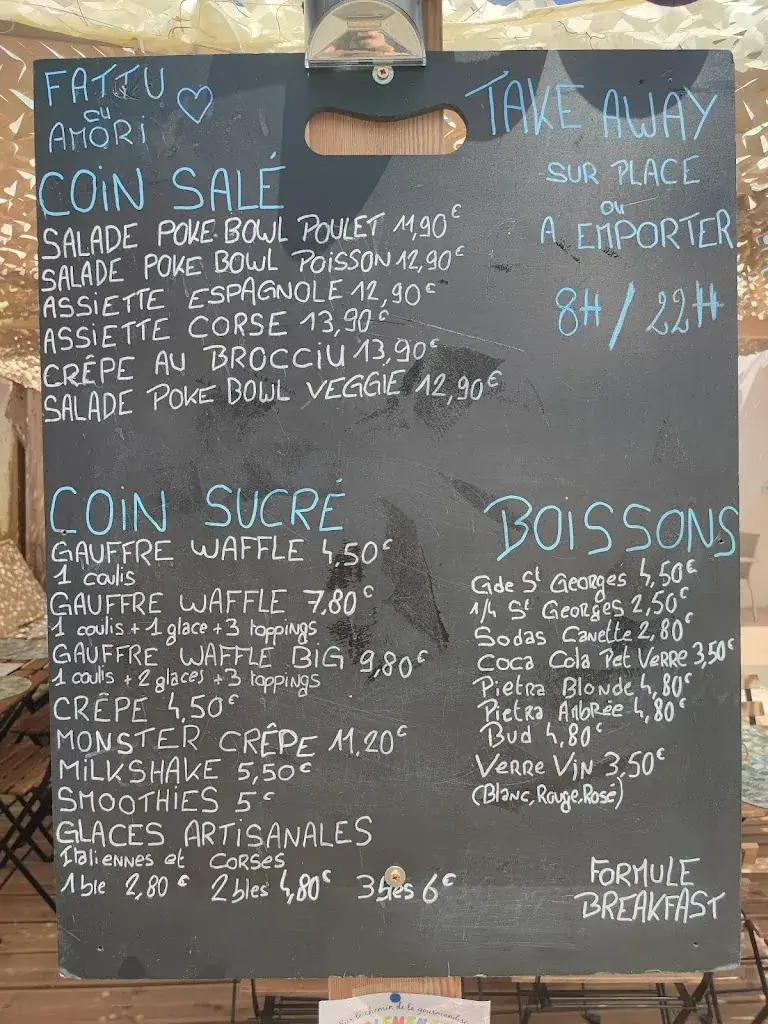 FATTU
cu
AMORI
TAKE AWAY
SUR PLACE
ou
A EMPORTER
8H / 22H
COIN SALÉ
SALADE POKE BOWL POULET 11,90€
SALADE POKE BOWL POISSON 12,90€
ASSIETTE ESPAGNOLE 12,90€
ASSIETTE CORSE 13,90€
CRÊPE AU BROCCIU 13,90€
SALADE POKE BOWL VEGGIE 12,90€
COIN SUCRÉ
GAUFFRE WAFFLE 4,50€
1 coulis
GAUFFRE WAFFLE 7.80€
1 coulis + 1 glace + 3 toppings
GAUFFRE WAFFLE BIG 9,80€
1 coulis + 2 glaces + 3 toppings
CRÊPE 4,50€
MONSTER CRÊPE 11.20€
MILKSHAKE 5,50€
SMOOTHIES 5€
GLACES ARTISANALES
Italiennes et CORSES
1 ble 2,80€ 2 bles 4,80€ 3 bles 6€
BOISSONS
Gde St Georges 4,50€
1/4 St Georges 2,50€
Sodas Canette 2,80€
Coca Cola Pet Verre 3,50€
Pietra Blonde 4,80€
Pietra Anbrée 4,80€
Bud 4,80€
Verre Vin 3,50€
(Blanc, Rouge, Rosé)
FORMULE
BREAKFAST
Sur le chemin de la gourmandise